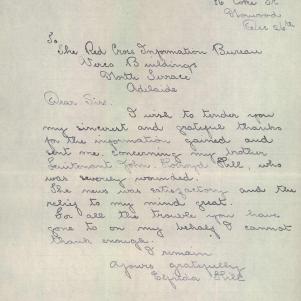 16 Coke St.
Norwood
Dec 26th
To
The Red Cross Information Bureau
Verco Buildings
North Terrace
Adelaide
Dear Sir.
I wish to tender you
my sincerest and grateful thanks
for the information gained and
sent me. Concerning my brother
Lieutenant John Lloyd Hill, who
was severely wounded.
The news was satisfactory and the
relief to my mind great.
For all the trouble you have
gone to on my behalf I cannot
thank enough.
I remain
Yours gratefully
Hill